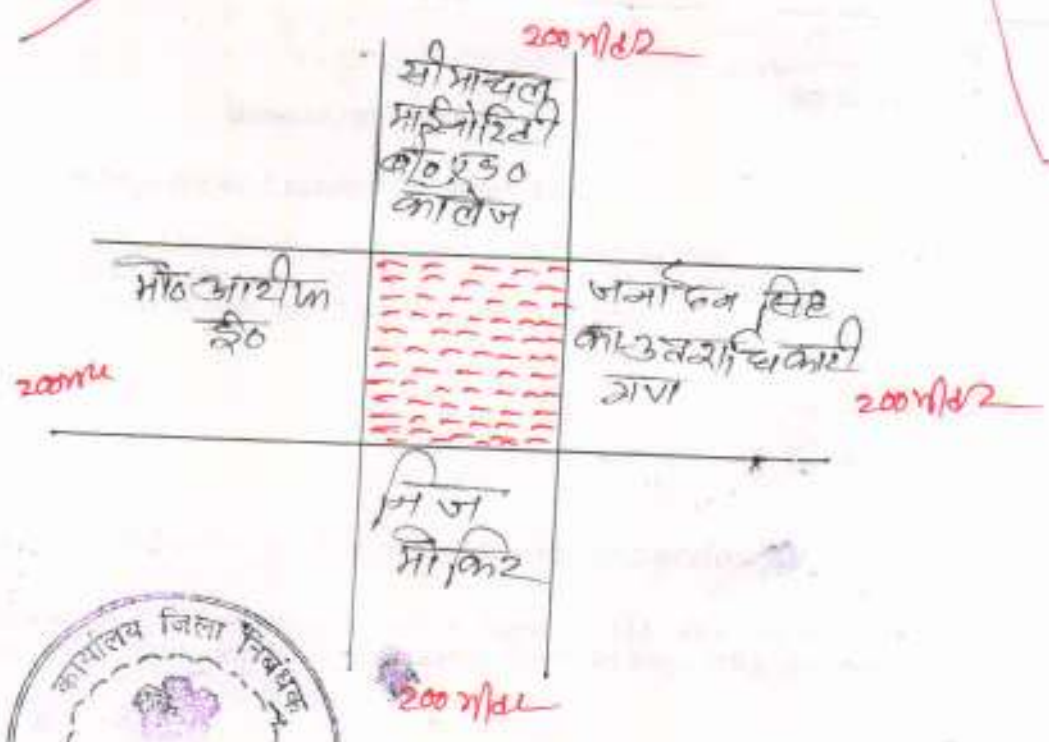 200 मीटर
सीमान्चल
माईनोरिटी
बी० एड०
कालेज
मो०
ई०
जनार्दन सिंह
का उतराधिकारी
गण
200
200 मीटर
निज
मोकिर
200 मीटर
कार्यालय जिला निबंधक